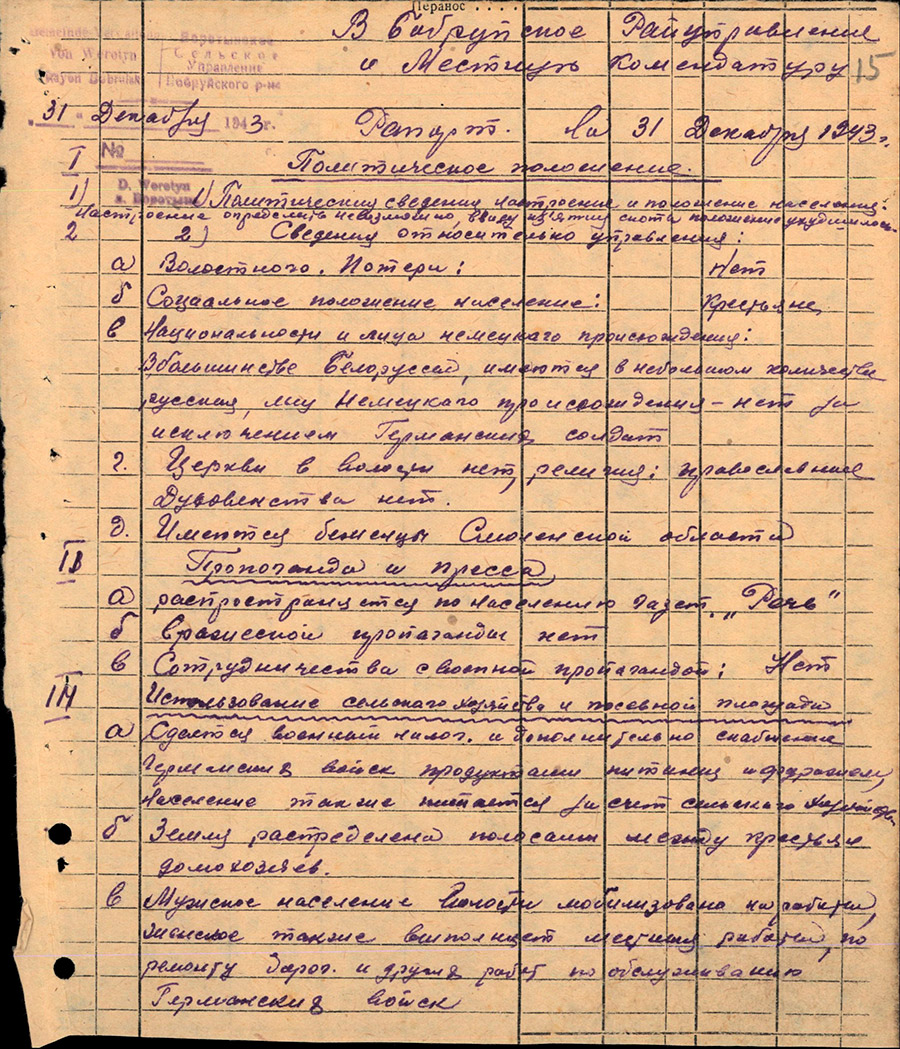 Перанос . . . .
В Бабруйское Райуправление
и Местную комендатуру 15
Gemeinde-Verwaltung
Von Werotyn
Rayon Bobruisk
Воротынское
Сельское
Управление
Бобруйского р-на
31 " Декабря 1943 г.
Рапорт. На 31 Декабря 1943 г.
№
I Политическое положение.
D. Werotyn
д. Воротынь
1) 1) Политический сведения настроение и положение населения:
Настроение определить невозможно, ввиду изъятия скота положение ухудшилось.
2 2) Сведения относительно управления:
а Волостного. Потери: Нет
б Социальное положение население: Крестьяне
в Национальности и лица немецкаго происхождения:
Вбольшинстве Белоруссой, имеются в небольшом количестве
русская, лиц Немецкаго происхождения – нет за
исключением Германский солдат
г. Церкви в волости нет, религия: православние
Духовенства нет.
д. Имеются беженцы Смоленской области
II Пропоганда и пресса
а распространяется по населению газет. „Речь"
б вражеской пропаганды нет
в Сотрудничества с военной пропагандой: Нет
III Использование сельскаго хозяйства и посевной площади
а Сдается военный налог. и дополнительно снабжение
Германский войск продуктами питания и фуражом,
Население также питается за счет сельскаго хозяйства
б Земля распределена полосами между крестьян
домохозяев.
в Мужское население Волости мобилизована на работы,
женское также выполняет местныя работы, по
ремонту дорог. и другия работ по обслуживанию
Германский войск